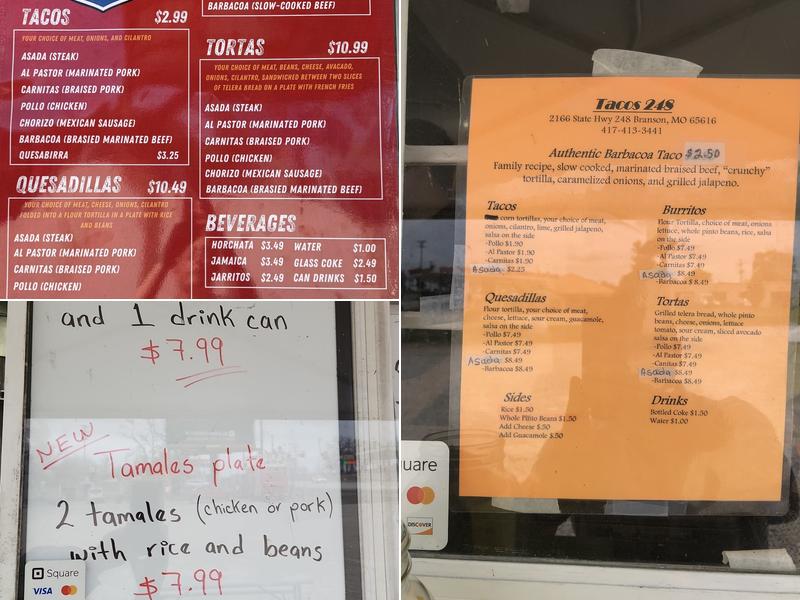 BARBACOA (SLOW-COOKED BEEF)
TACOS $2.99
YOUR CHOICE OF MEAT, ONIONS, AND CILANTRO
ASADA (STEAK)
AL PASTOR (MARINATED PORK)
CARNITAS (BRAISED PORK)
POLLO (CHICKEN)
CHORIZO (MEXICAN SAUSAGE)
BARBACOA (BRASIED MARINATED BEEF)
QUESABIRRA $3.25
QUESADILLAS $10.49
YOUR CHOICE OF MEAT, CHEESE, ONIONS, CILANTRO
FOLDED INTO A FLOUR TORTILLA IN A PLATE WITH RICE
AND BEANS
ASADA (STEAK)
AL PASTOR (MARINATED PORK)
CARNITAS (BRAISED PORK)
POLLO (CHICKEN)
TORTAS $10.99
YOUR CHOICE OF MEAT, BEANS, CHEESE, AVACADO,
ONIONS, CILANTRO, SANDWICHED BETWEEN TWO SLICES
OF TELERA BREAD ON A PLATE WITH FRENCH FRIES
ASADA (STEAK)
AL PASTOR (MARINATED PORK)
CARNITAS (BRAISED PORK)
POLLO (CHICKEN)
CHORIZO (MEXICAN SAUSAGE)
BARBACOA (BRASIED MARINATED BEEF)
BEVERAGES
HORCHATA $3.49 WATER $1.00
JAMAICA $3.49 GLASS COKE $2.49
JARRITOS $2.49 CAN DRINKS $1.50
and 1 drink can
$7.99
NEW
Tamales plate
2 tamales (chicken or pork)
with rice and beans
$7.99
Square
VISA
Tacos 248
2166 State Hwy 248 Branson, MO 65616
417-413-3441
Authentic Barbacoa Taco $2.50
Family recipe, slow cooked, marinated braised beef, "crunchy"
tortilla, caramelized onions, and grilled jalapeno.
Tacos
corn tortillas, your choice of meat,
onions, cilantro, lime, grilled jalapeno,
salsa on the side
-Pollo $1.90
-Al Pastor $1.90
-Carnitas $1.90
Asada $2.25
Burritos
Flour Tortilla, your choice of meat, onions
lettuce, whole pinto beans, rice, salsa
on the side
-Pollo $7.49
-Al Pastor $7.49
-Carnitas $7.49
Asada $8.49
-Barbacoa $ 8.49
Quesadillas
Flour tortilla, your choice of meat,
cheese, lettuce, sour cream, guacamole,
salsa on the side
-Pollo $7.49
-Al Pastor $7.49
-Carnitas $7.49
Asada $8.49
-Barbacoa $8.49
Tortas
Grilled telera bread, whole pinto
beans, cheese, onions, lettuce
tomato, sour cream, sliced avocado
salsa on the side
-Pollo $7.49
-Al Pastor $7.49
-Canitas $7.49
Asada $8.49
-Barbacoa $8.49
Sides
Rice $1.50
Whole Pinto Beans $1.50
Add Cheese $.50
Add Guacamole $.50
Drinks
Bottled Coke $1.50
Water $1.00
uare
DISCOVER